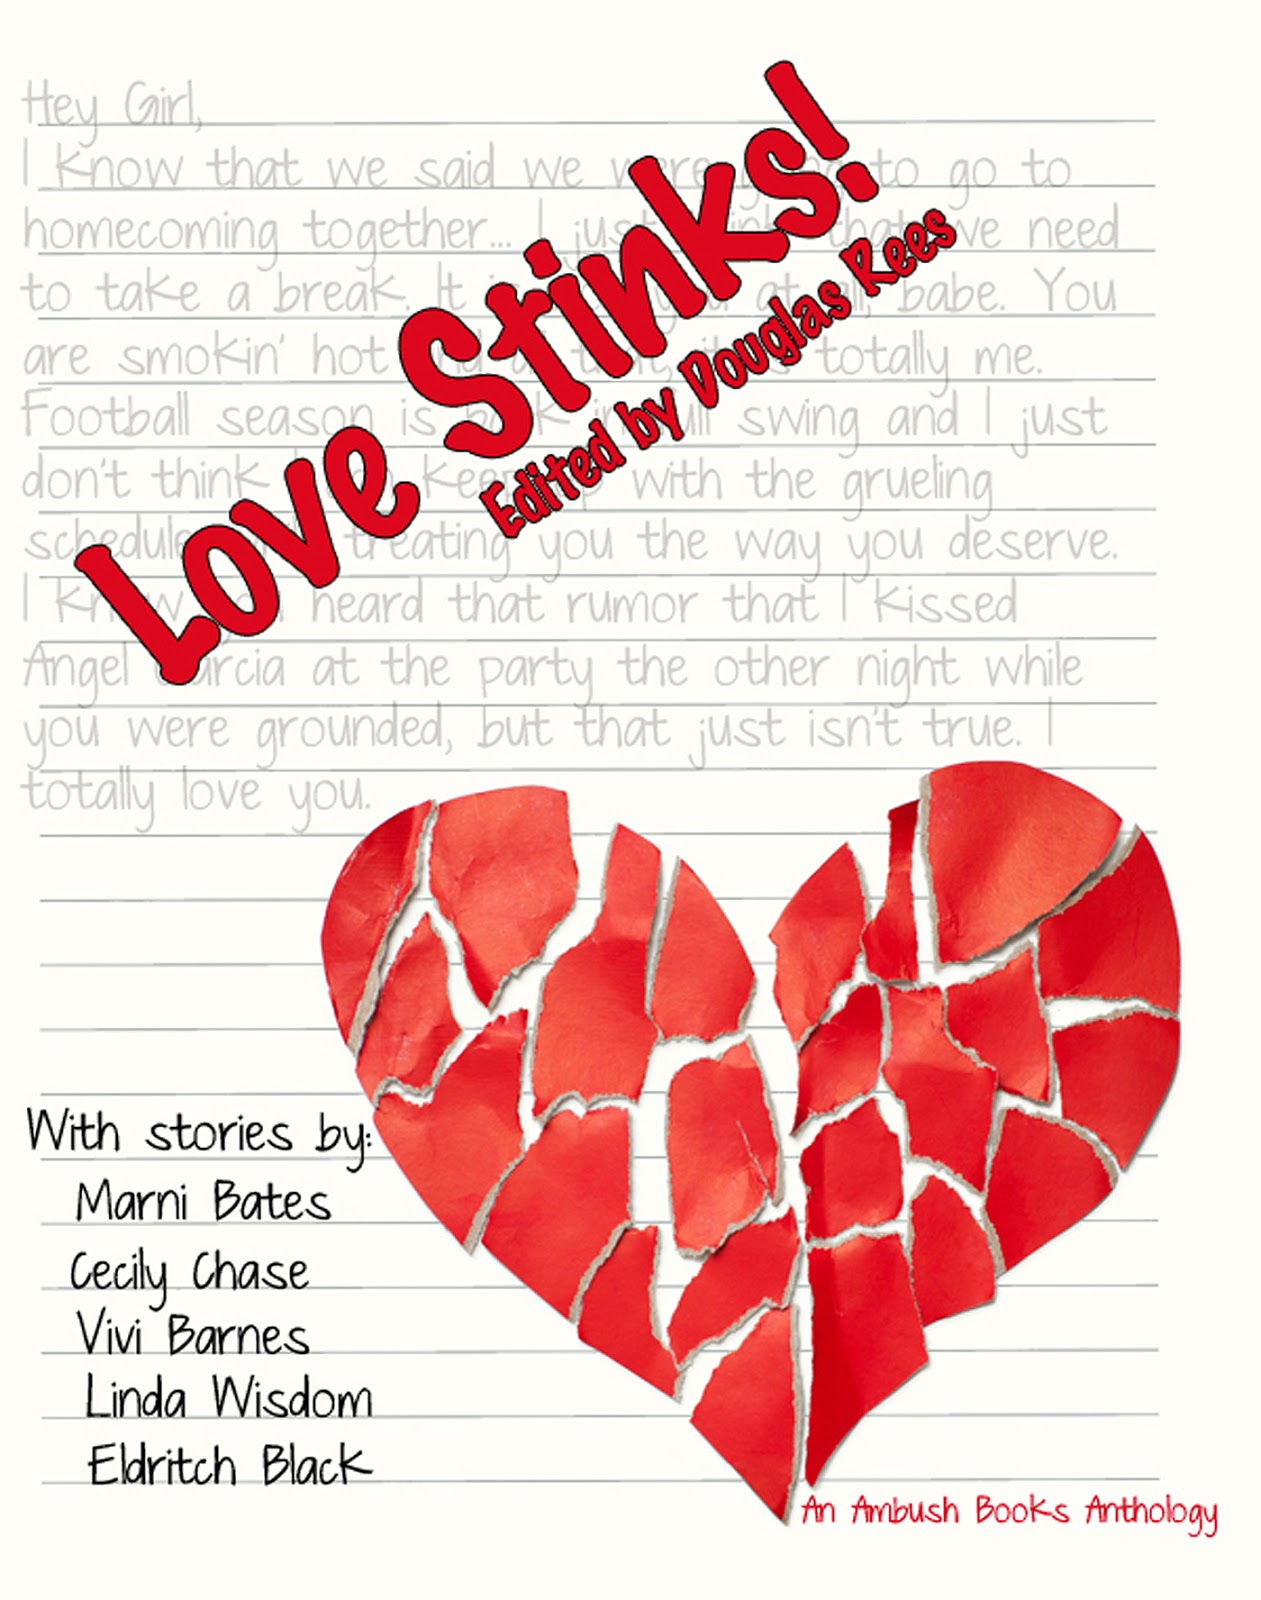 Hey Girl,
I know that we said we were to go to
homecoming together... I just that we need
to take a break. It at all, babe. You
are smokin' hot totally me.
Football season is back in full swing and I just
don't think keep with the grueling
schedule treating you the way you deserve.
I know heard that rumor that I kissed
Angel Garcia at the party the other night while
you were grounded, but that just isn't true. I
totally love you.
Love Stinks!
Edited by Douglas Rees
With stories by:
Marni Bates
Cecily Chase
Vivi Barnes
Linda Wisdom
Eldritch Black
An Ambush Books Anthology